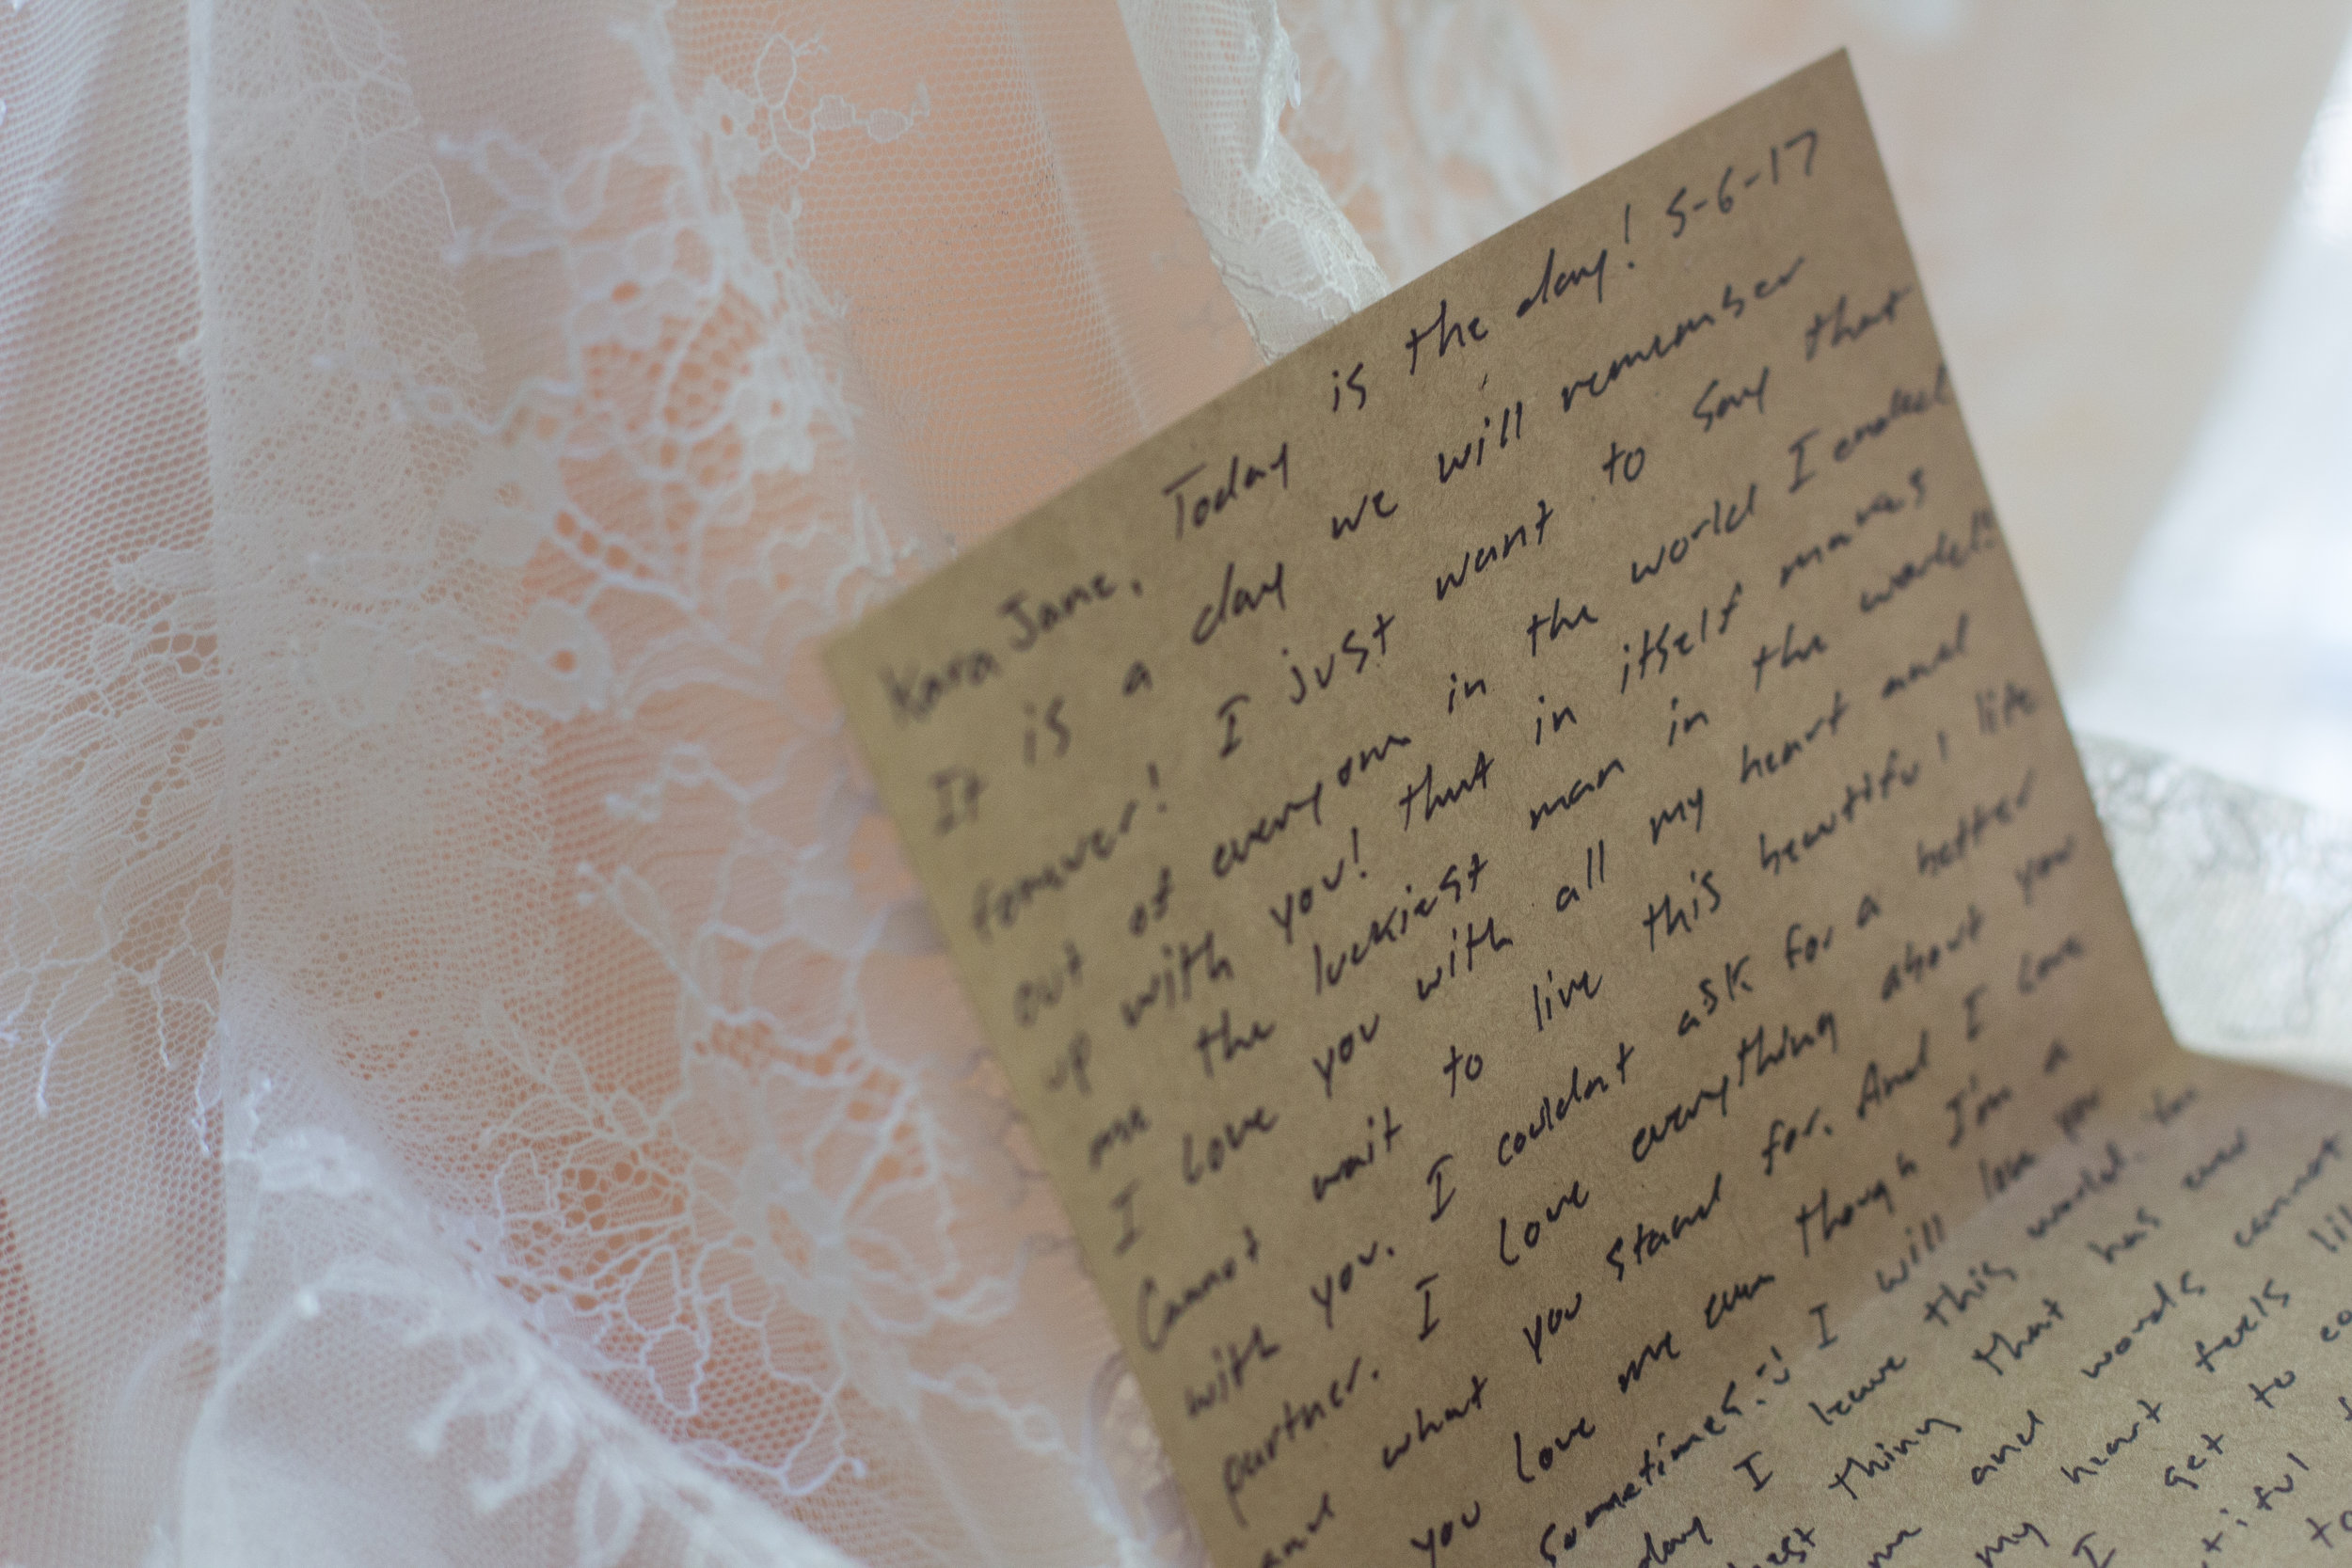 Kara Jane, Today is the day! 5-6-17
It is a day we will remember
forever! I just want to say that
out of everyone in the world I ended
up with you! that in itself makes
me the luckiest man in the world!
I love you with all my heart and
Cannot wait to live this beautiful life
with you. I couldnt ask for a better
partner. I love everything about you
and what you stand for. And I love
you love me even though I'm a
sometimes :) I will love you
day I leave this world.
thing that has ever
and words cannot
my heart feels
I get to